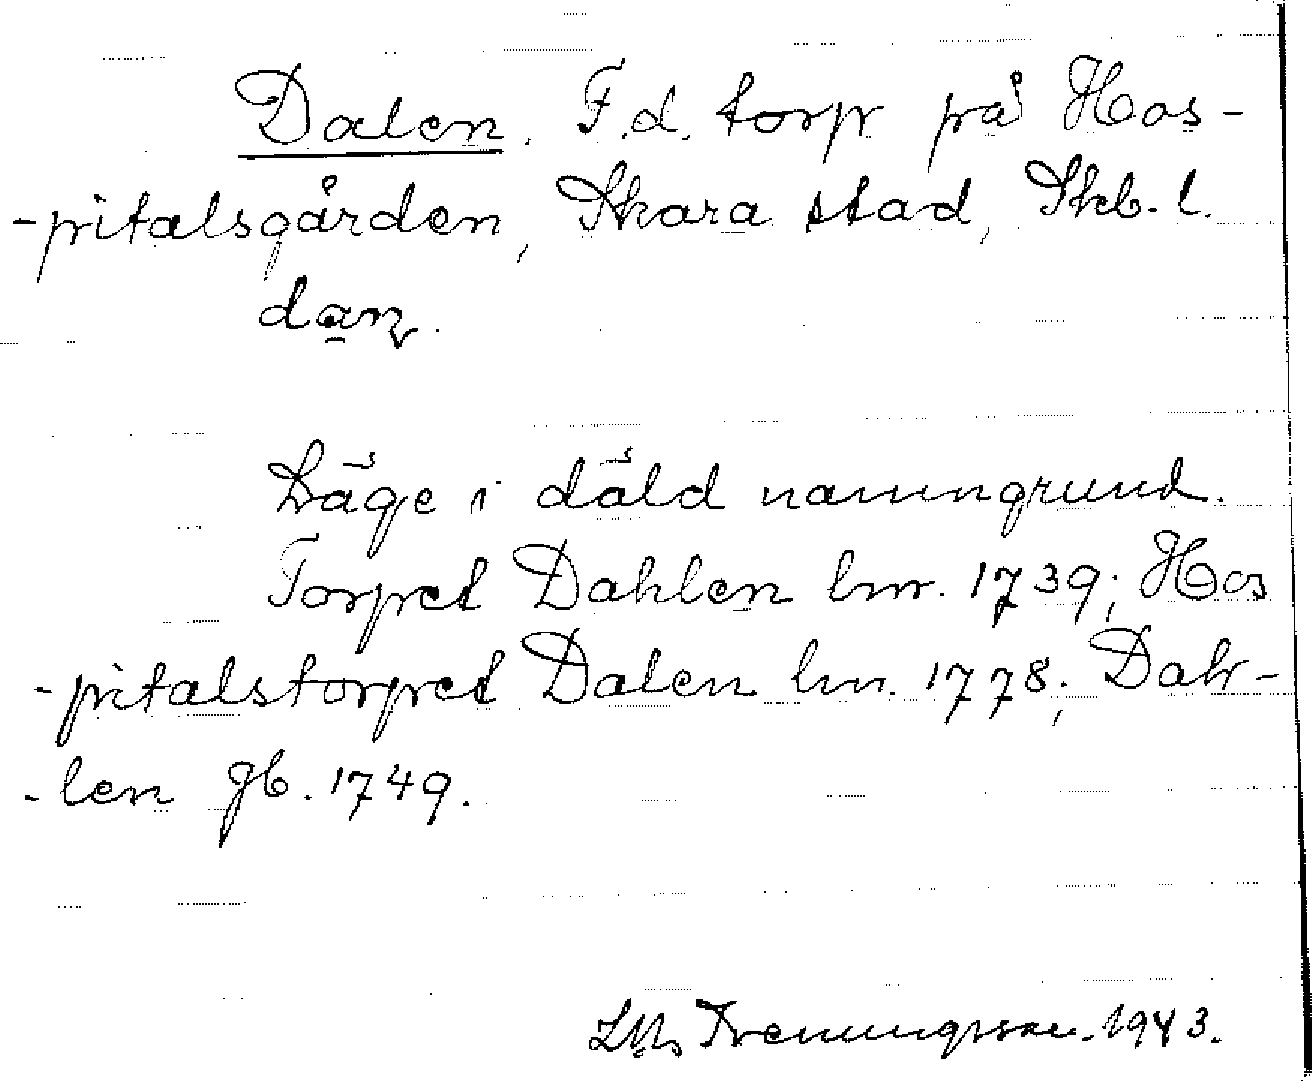 Dalen. F.d. torp på Hos-
-pitalsgården, Skara stad, Skb. l.
dan.
Läge i däld namngrund.
Torpet Dahlen hm. 1739; Hos
-pitalstorpet Dalen hm. 1778; Dah-
-len Jb. 1749.
1943.